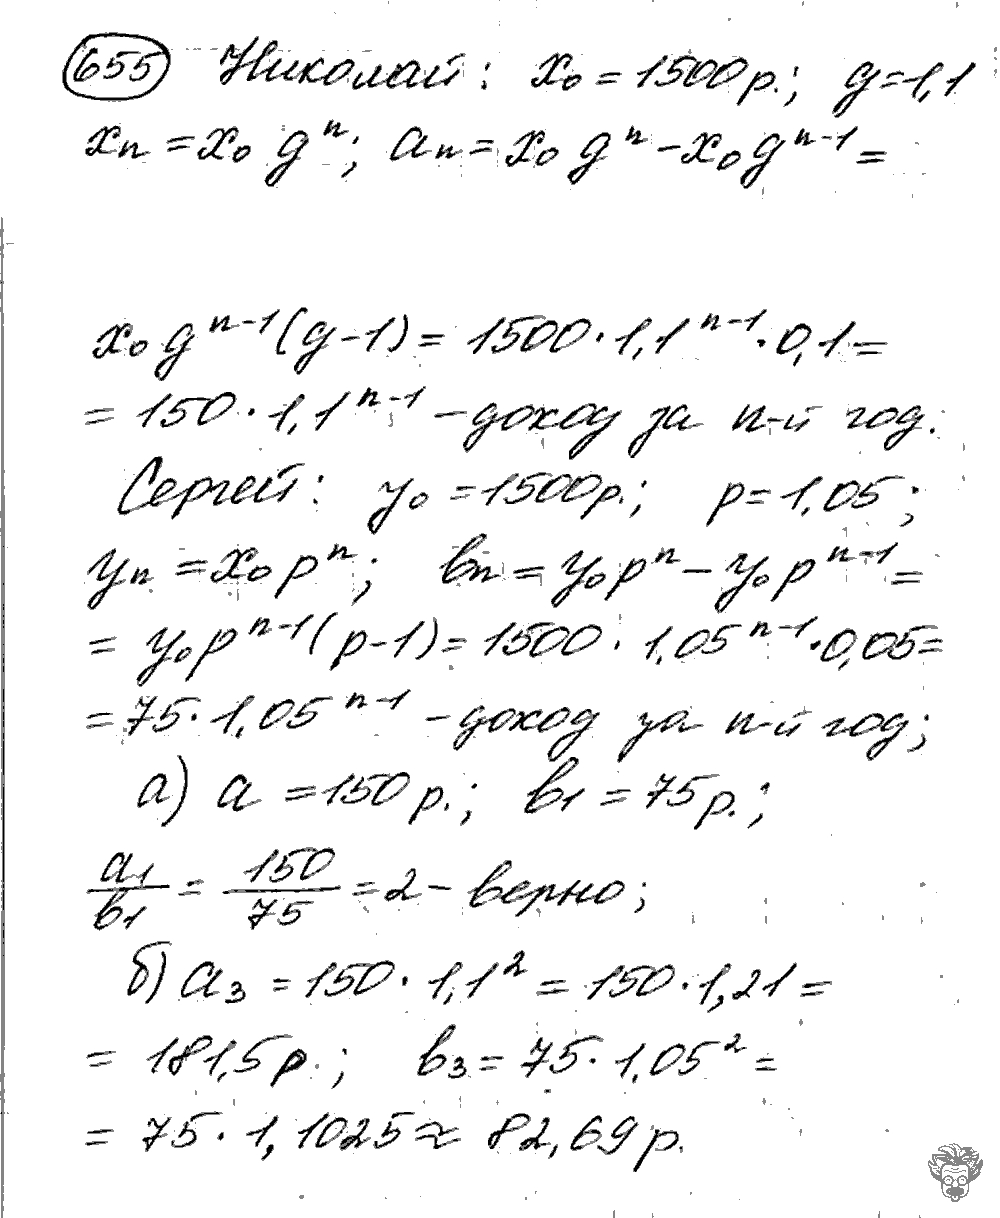 655 Николай: x₀ = 1500р.; g = 1,1
xₙ = x₀ gⁿ; aₙ = x₀ gⁿ - x₀ gⁿ⁻¹ =
x₀ gⁿ⁻¹(g-1) = 1500 · 1,1ⁿ⁻¹ · 0,1 =
= 150 · 1,1ⁿ⁻¹ - доход за n-й год.
Сергей: y₀ = 1500р.; p = 1,05;
yₙ = x₀ pⁿ; вₙ = y₀ pⁿ - y₀ pⁿ⁻¹ =
= y₀ pⁿ⁻¹(p-1) = 1500 · 1,05ⁿ⁻¹ · 0,05 =
= 75 · 1,05ⁿ⁻¹ - доход за n-й год;
а) a = 150 р.; в₁ = 75р.;
a₁/в₁ = 150/75 = 2 - верно;
б) a₃ = 150 · 1,1² = 150 · 1,21 =
= 181,5р.; в₃ = 75 · 1,05² =
= 75 · 1,1025 ≈ 82,69р.